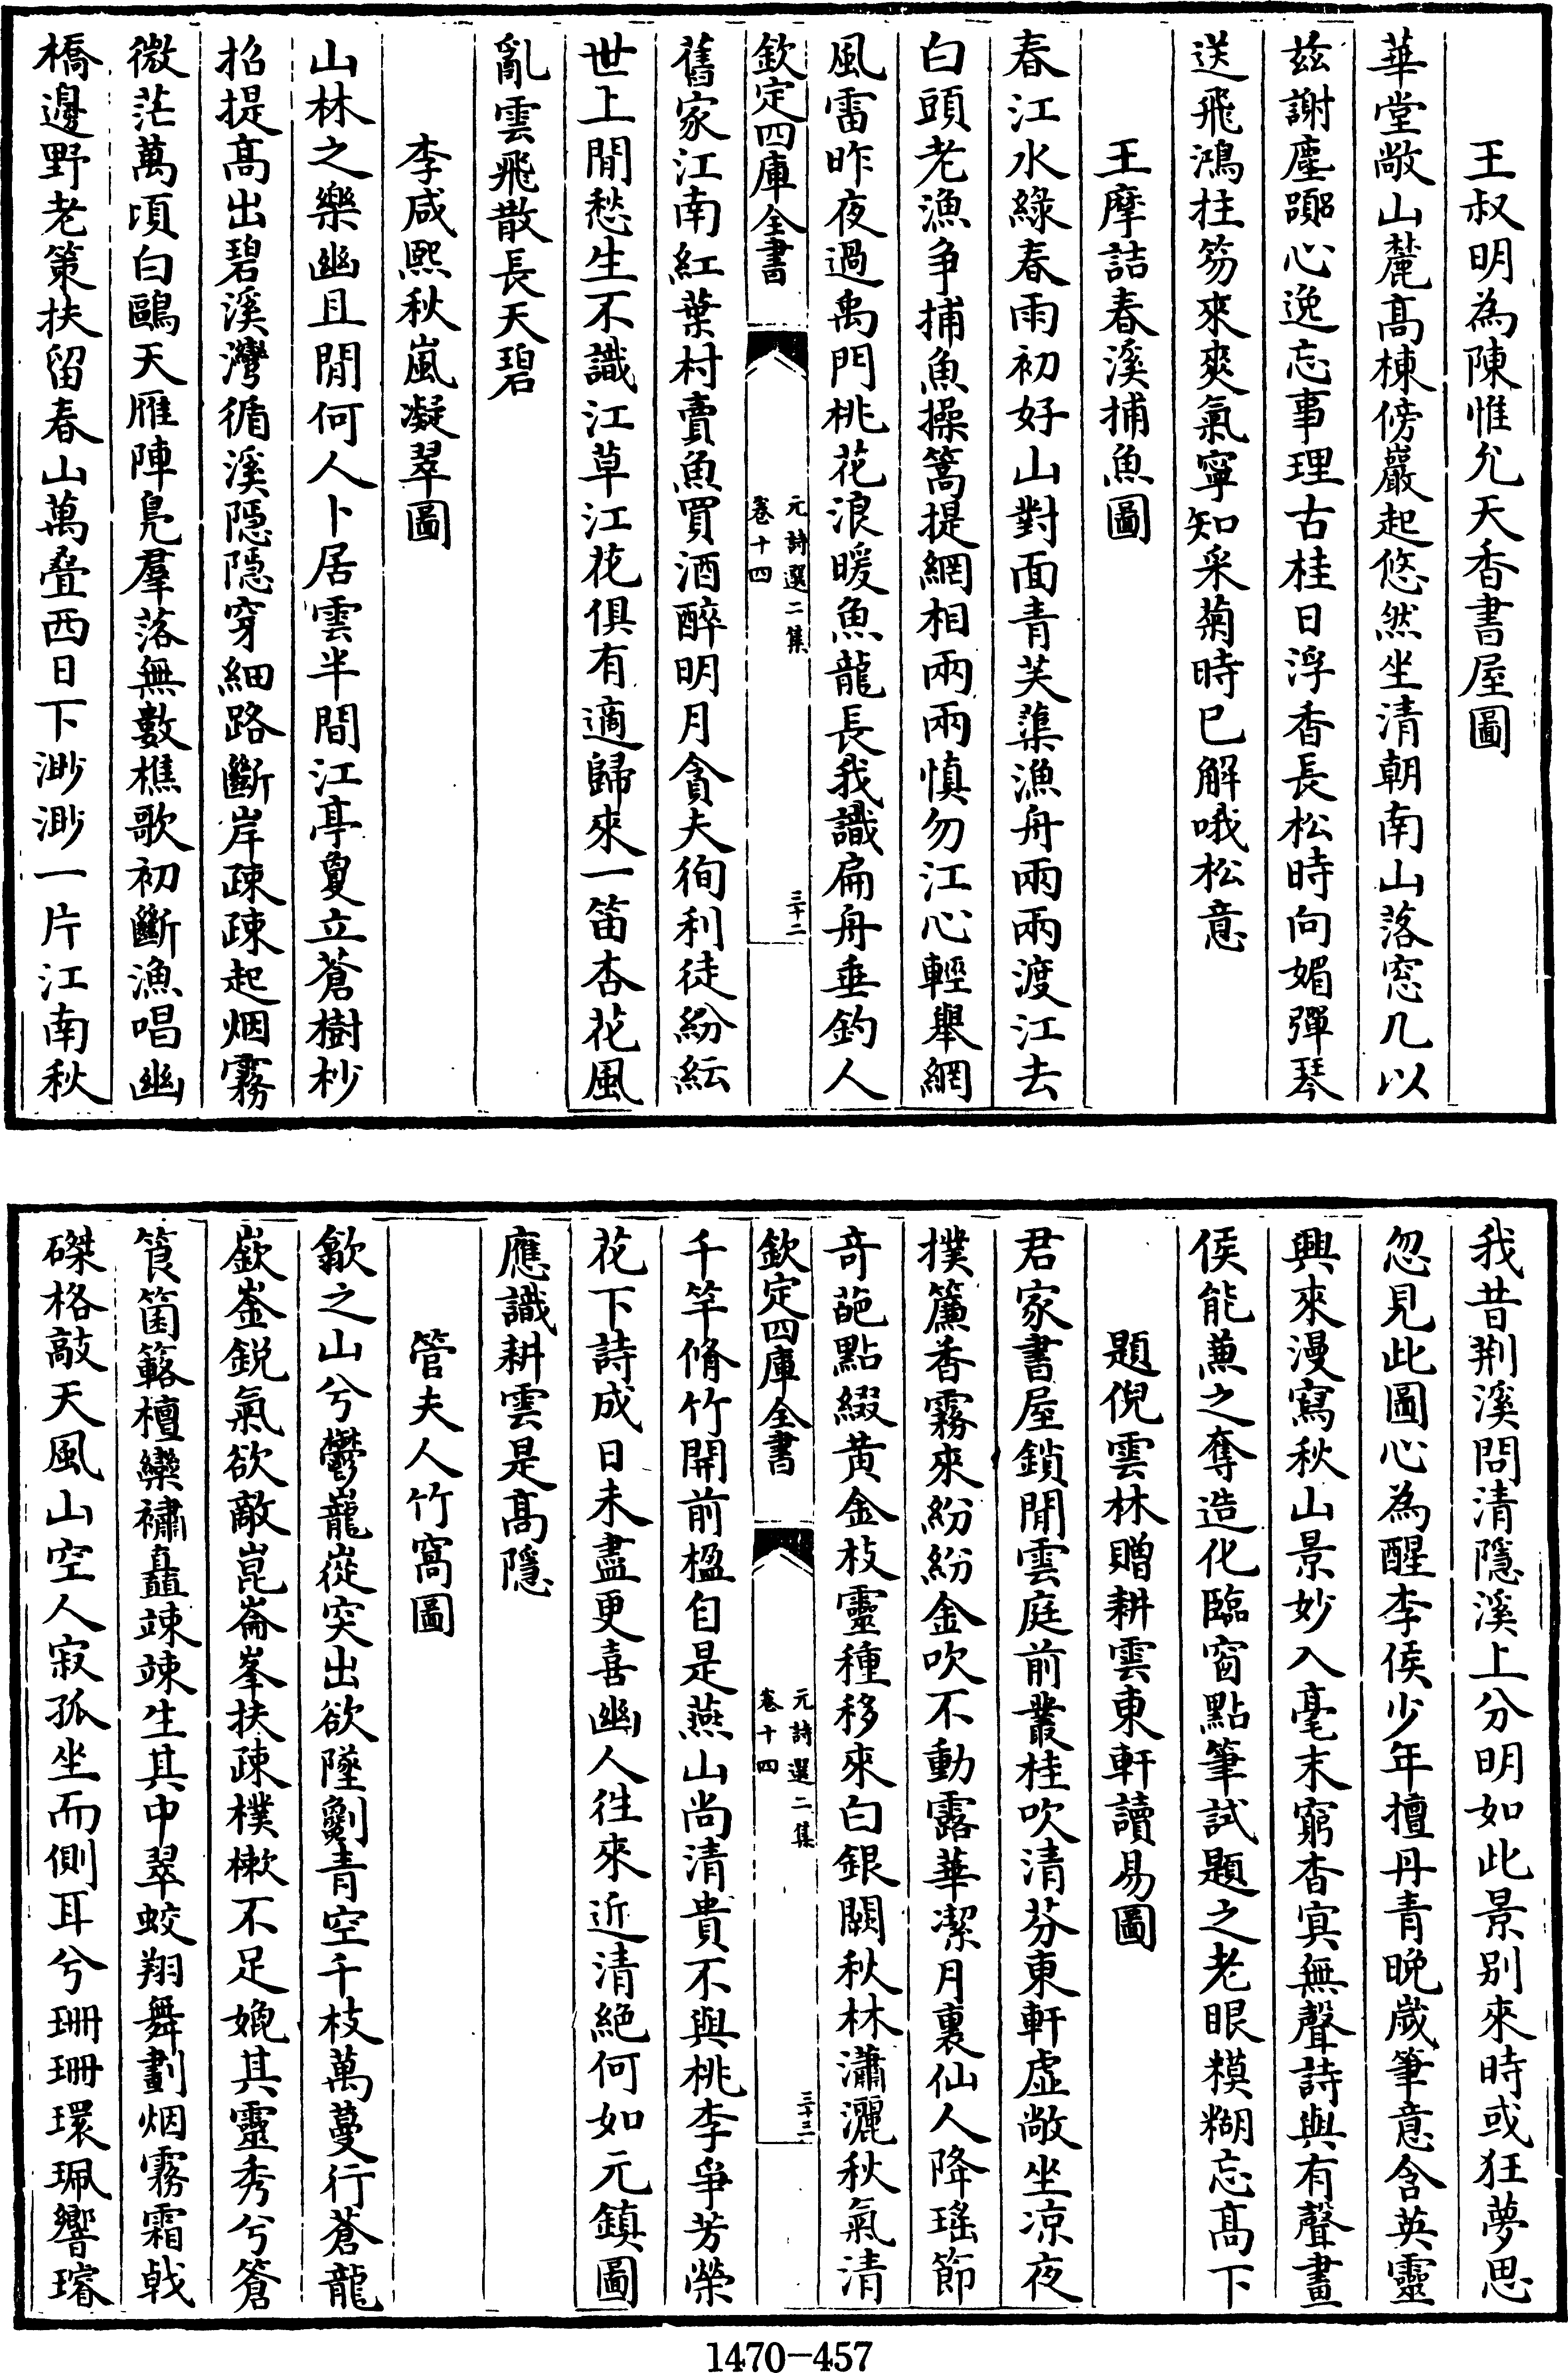 王叔明為陳惟允天香書屋圖
華堂敞山麓髙棟傍巖起悠然坐清朝南山落窓几以
兹謝塵躁心逸忘事理古桂日浮香長松時向媚彈琴
送飛鴻拄笏來爽氣寧知采菊時已解哦松意
王摩詰春溪捕魚圖
春江水綠春雨初好山對面青芙蕖漁舟兩兩渡江去
白頭老漁争捕魚操篙提網相兩兩慎勿江心輕舉網
風雷昨夜過禹門桃花浪暖魚龍長我識扁舟垂釣人
欽定四庫全書
元詩選二集
卷十四
三十二
舊家江南紅葉村賣魚買酒醉明月貪夫徇利徒紛紜
世上閒愁生不識江草江花俱有適歸來一笛杏花風
亂雲飛散長天碧
李咸熙秋嵐凝翠圖
山林之樂幽且閒何人卜居雲半間江亭敻立蒼樹杪
招提髙出碧溪灣循溪隱隱穿細路斷岸疎疎起烟霧
微茫萬頃白鷗天雁陣鳧羣落無數樵歌初斷漁唱幽
橋邊野老策扶留春山萬疊西日下渺渺一片江南秋
我昔荆溪問清隱溪上分明如此景别來時或狂夢思
忽見此圖心為醒李侯少年擅丹青晚歲筆意含英靈
興來漫寫秋山景妙入毫末窮杳㝠無聲詩與有聲畫
侯能兼之奪造化臨窗點筆試題之老眼糢糊忘髙下
題倪雲林贈耕雲東軒讀易圖
君家書屋鎖閒雲庭前叢桂吹清芬東軒虚敞坐凉夜
撲簾香霧來紛紛金吹不動露華潔月裏仙人降瑤節
奇葩點綴黄金枝靈種移來白銀闕秋林瀟灑秋氣清
欽定四庫全書
元詩選二集
卷十四
三十三
千竿脩竹開前楹自是燕山尚清貴不與桃李爭芳榮
花下詩成日未盡更喜幽人徃來近清絶何如元鎮圖
應識耕雲是髙隱
管夫人竹窩圖
歙之山兮鬱巃嵸突出欲墜劙青空千枝萬蔓行蒼龍
嶔崟鋭氣欲敵崑崙峯扶疎樸樕不足媲其靈秀兮篬
筤箘簵檀欒橚矗竦竦生其中翠蛟翔舞劃烟霧霜戟
磔格敲天風山空人寂孤坐而側耳兮珊珊環珮響璿
1470-457